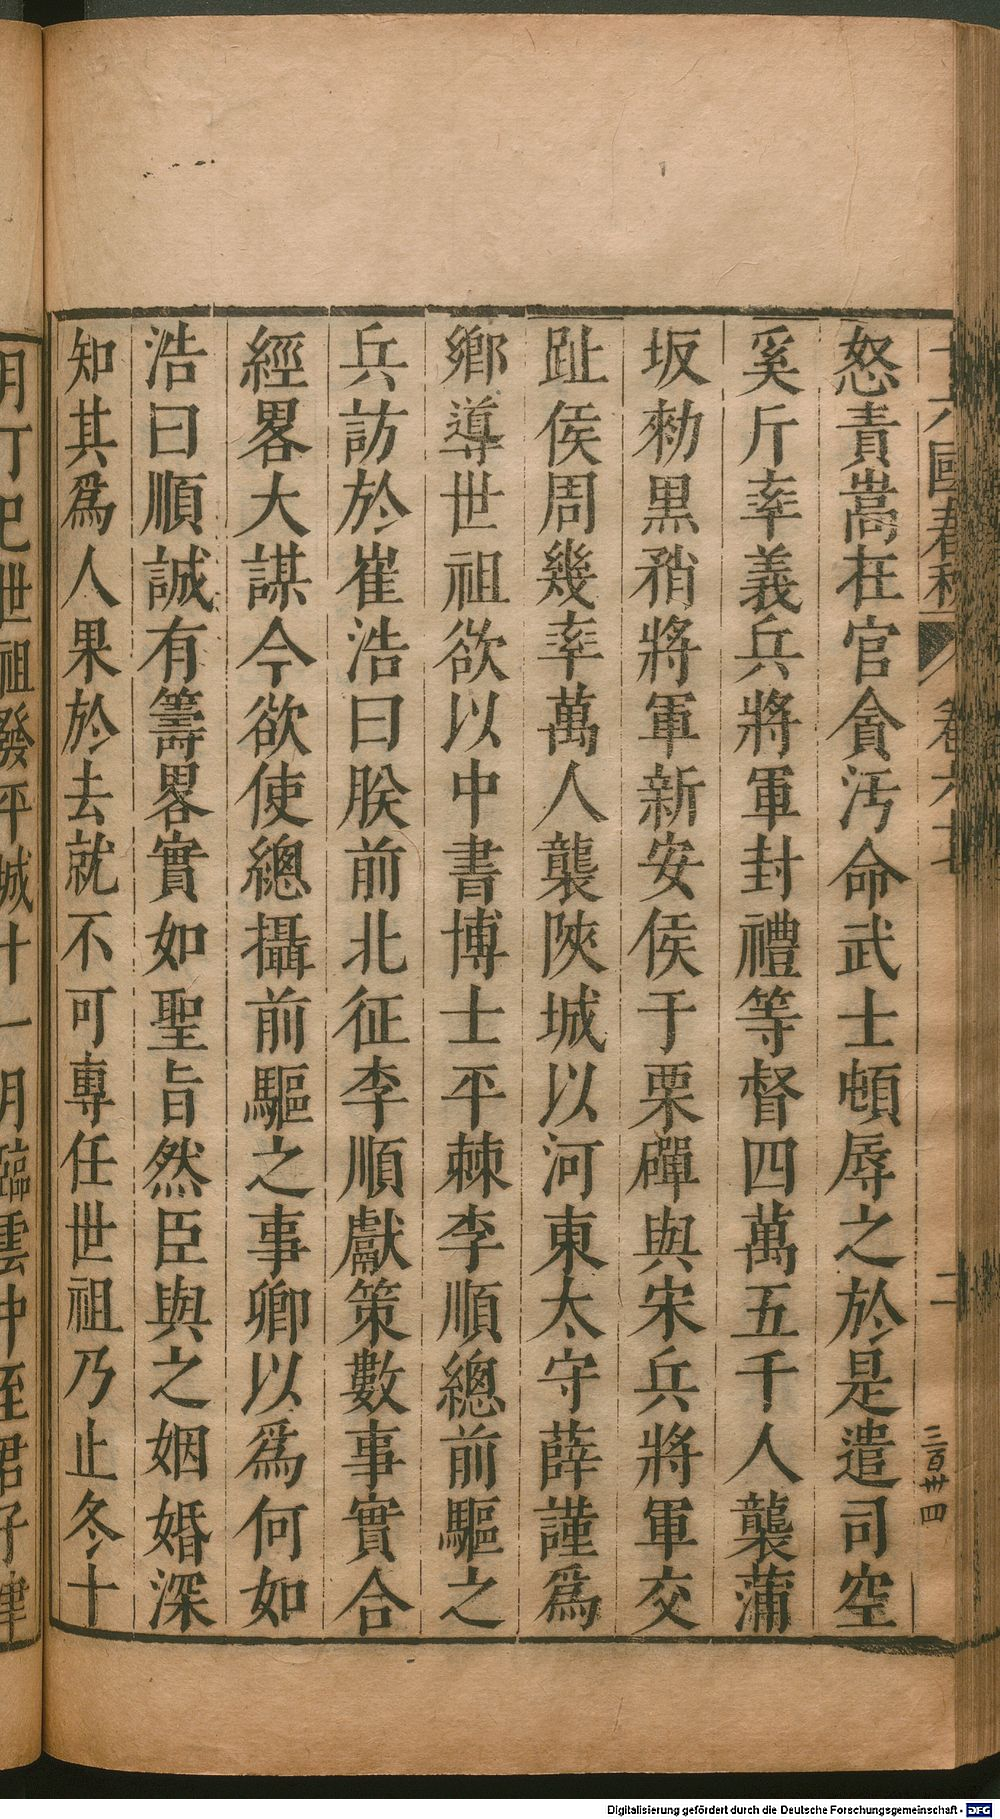 十六國春秋 卷六十 二
三百卅四
怒責嵩在官貪汚命武士頓辱之於是遣司空
奚斤率義兵將軍封禮等督四萬五千人襲蒲
坂勑黑矟將軍新安侯于栗磾與宋兵將軍交
趾侯周幾率萬人襲陜城以河東太守薛謹爲
鄉導世祖欲以中書博士平棘李順總前驅之
兵訪於崔浩曰朕前北征李順獻策數事實合
經畧大謀今欲使總攝前驅之事卿以爲何如
浩曰順誠有籌畧實如聖旨然臣與之姻婚深
知其爲人果於去就不可專任世祖乃止冬十
月丁巳世祖發平城十一月臨雲中至君子津
Digitalisierung gefördert durch die Deutsche Forschungsgemeinschaft - DFG